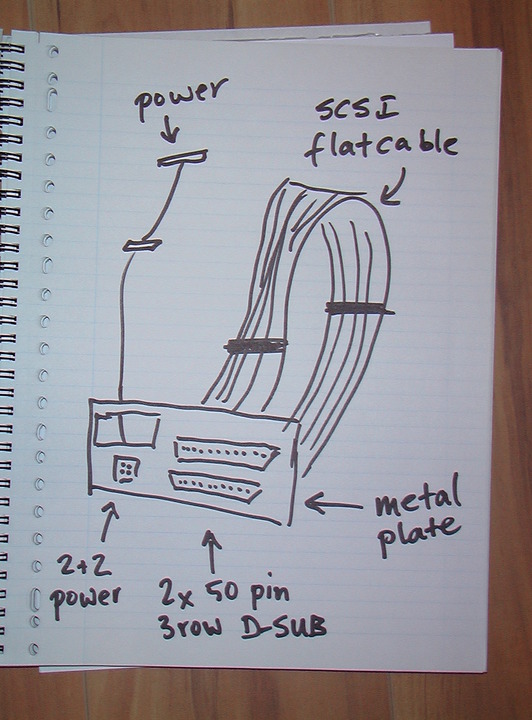 power
SCSI
flatcable
metal
plate
2+2
power
2x 50 pin
3row D-SUB